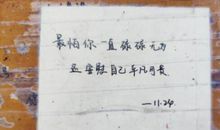 最怕你一直碌碌无为
还安慰自己平凡可贵
—11.24